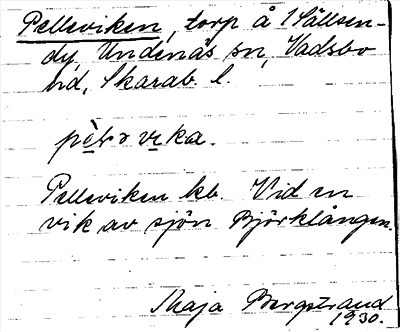 Pelleviken, torp å Sällsen-
dy, Undenäs sn, Vadsbo
hd, Skarab. l.
pèlɘ vika.
Pelleviken kb. Vid en
vik av sjön Björklången.
Maja Bergstrand
1930.